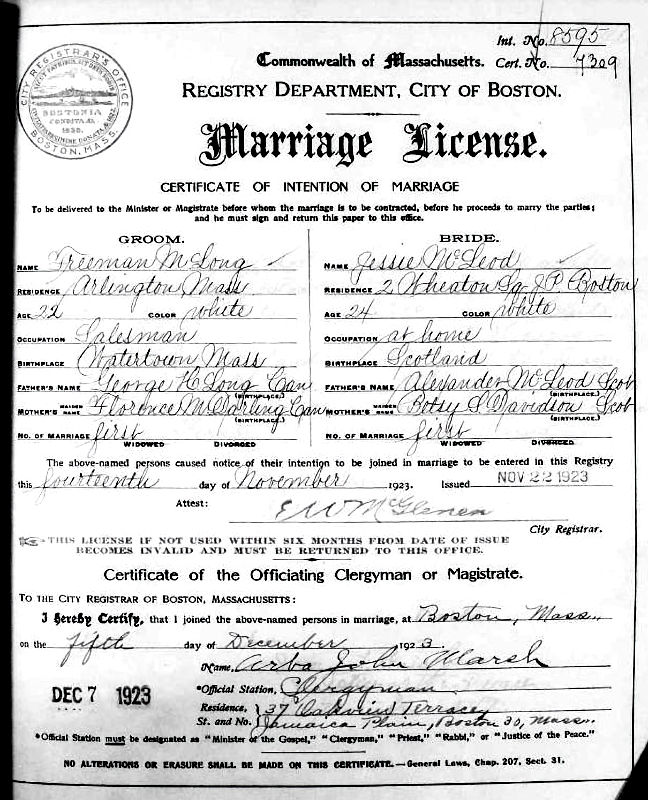 Int. No. 8595
Commonwealth of Massachusetts. Cert. No. 7309
CITY REGISTRAR'S OFFICE
BOSTONIA
CONDITA A.D.
1630.
BOSTON, MASS.
REGISTRY DEPARTMENT, CITY OF BOSTON.
Marriage License.
CERTIFICATE OF INTENTION OF MARRIAGE
To be delivered to the Minister or Magistrate before whom the marriage is to be contracted, before he proceeds to marry the parties;
and he must sign and return this paper to this office.
GROOM.
NAME Freeman M Long
RESIDENCE Arlington Mass
AGE 22 COLOR white
OCCUPATION Salesman
BIRTHPLACE Watertown Mass
FATHER'S NAME George H Long Can
(BIRTHPLACE.)
MOTHER'S MAIDEN NAME Florence M Darling Can
(BIRTHPLACE.)
NO. OF MARRIAGE first
WIDOWED DIVORCED
BRIDE.
NAME Jessie McLeod
RESIDENCE 2 Wheaton Sq J P Boston
AGE 24 COLOR white
OCCUPATION at home
BIRTHPLACE Scotland
FATHER'S NAME Alexander McLeod Scot
(BIRTHPLACE.)
MOTHER'S MAIDEN NAME Betsy S Davidson Scot
(BIRTHPLACE.)
NO. OF MARRIAGE first
WIDOWED DIVORCED
The above-named persons caused notice of their intention to be joined in marriage to be entered in this Registry
this fourteenth day of November 1923. Issued NOV 22 1923
Attest: E W McGlenen
City Registrar.
THIS LICENSE IF NOT USED WITHIN SIX MONTHS FROM DATE OF ISSUE
BECOMES INVALID AND MUST BE RETURNED TO THIS OFFICE.
Certificate of the Officiating Clergyman or Magistrate.
TO THE CITY REGISTRAR OF BOSTON, MASSACHUSETTS:
I Hereby Certify, that I joined the above-named persons in marriage, at Boston, Mass.
on the fifth day of December 1923
Name, Arba John Marsh
DEC 7 1923
*Official Station, Clergyman
Residence, 37 Terrace,
St. and No. Jamaica Plain, Boston 30, Mass.
*Official Station must be designated as "Minister of the Gospel," "Clergyman," "Priest," "Rabbi," or "Justice of the Peace."
NO ALTERATIONS OR ERASURE SHALL BE MADE ON THIS CERTIFICATE.—General Laws, Chap. 207, Sect. 31.